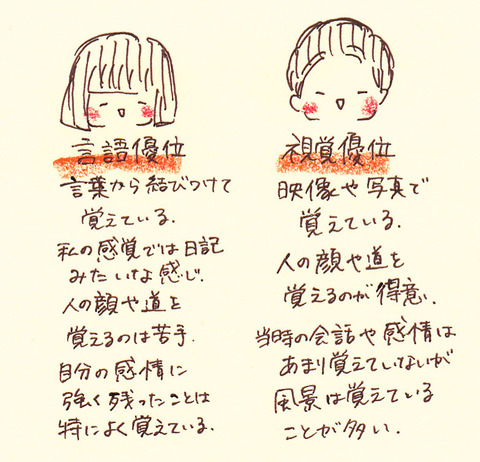 言語優位
言葉から結びつけて
覚えている.
私の感覚では日記
みたいな感じ.
人の顔や道を
覚えるのは苦手.
自分の感情に
強く残ったことは
特によく覚えている.
視覚優位
映像や写真で
覚えている.
人の顔や道を
覚えるのが得意.
当時の会話や感情は
あまり覚えていないが
風景は覚えている
ことが多い.